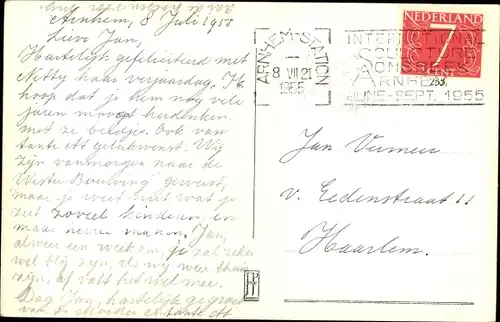 Arnhem, 8 Juli 1955
Lieve Jan,
Hartelijk gefeliciteerd met
Netty haar verjaardag. Ik
hoop dat je hem nog vele
jaren moogt herdenken
met ze beidjes. Ook van
tante Att gelukwenst. Wij
zijn vanmorgen naar de
Wester Bouwing geweest,
maar je weet niet wat je
ziet zoveel kinderen, en
maar nerrie maken. Jan,
alweer een week om, je zal zeker
wel blij zijn, als wij weer thuis
zijn, of valt het wel mee.
Dag Jan, hartelijk gegroet
van de Moeder en tante Att
ARNHEM-STATION
8 VII 21
1955
INTERNATIONAL
SCULPTURE
SONSBEEK
ARNHEM
JUNE-SEPT. 1955
NEDERLAND
7
CENT
283.
Jan Vermeer
v. Eedenstraat 11
Haarlem.